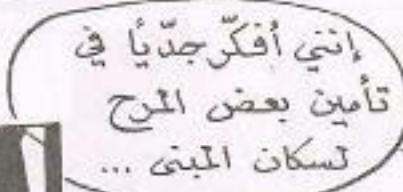 إنني أفكّر جدّيًا في
تأمين بعض المرح
لسكان المبنى ...